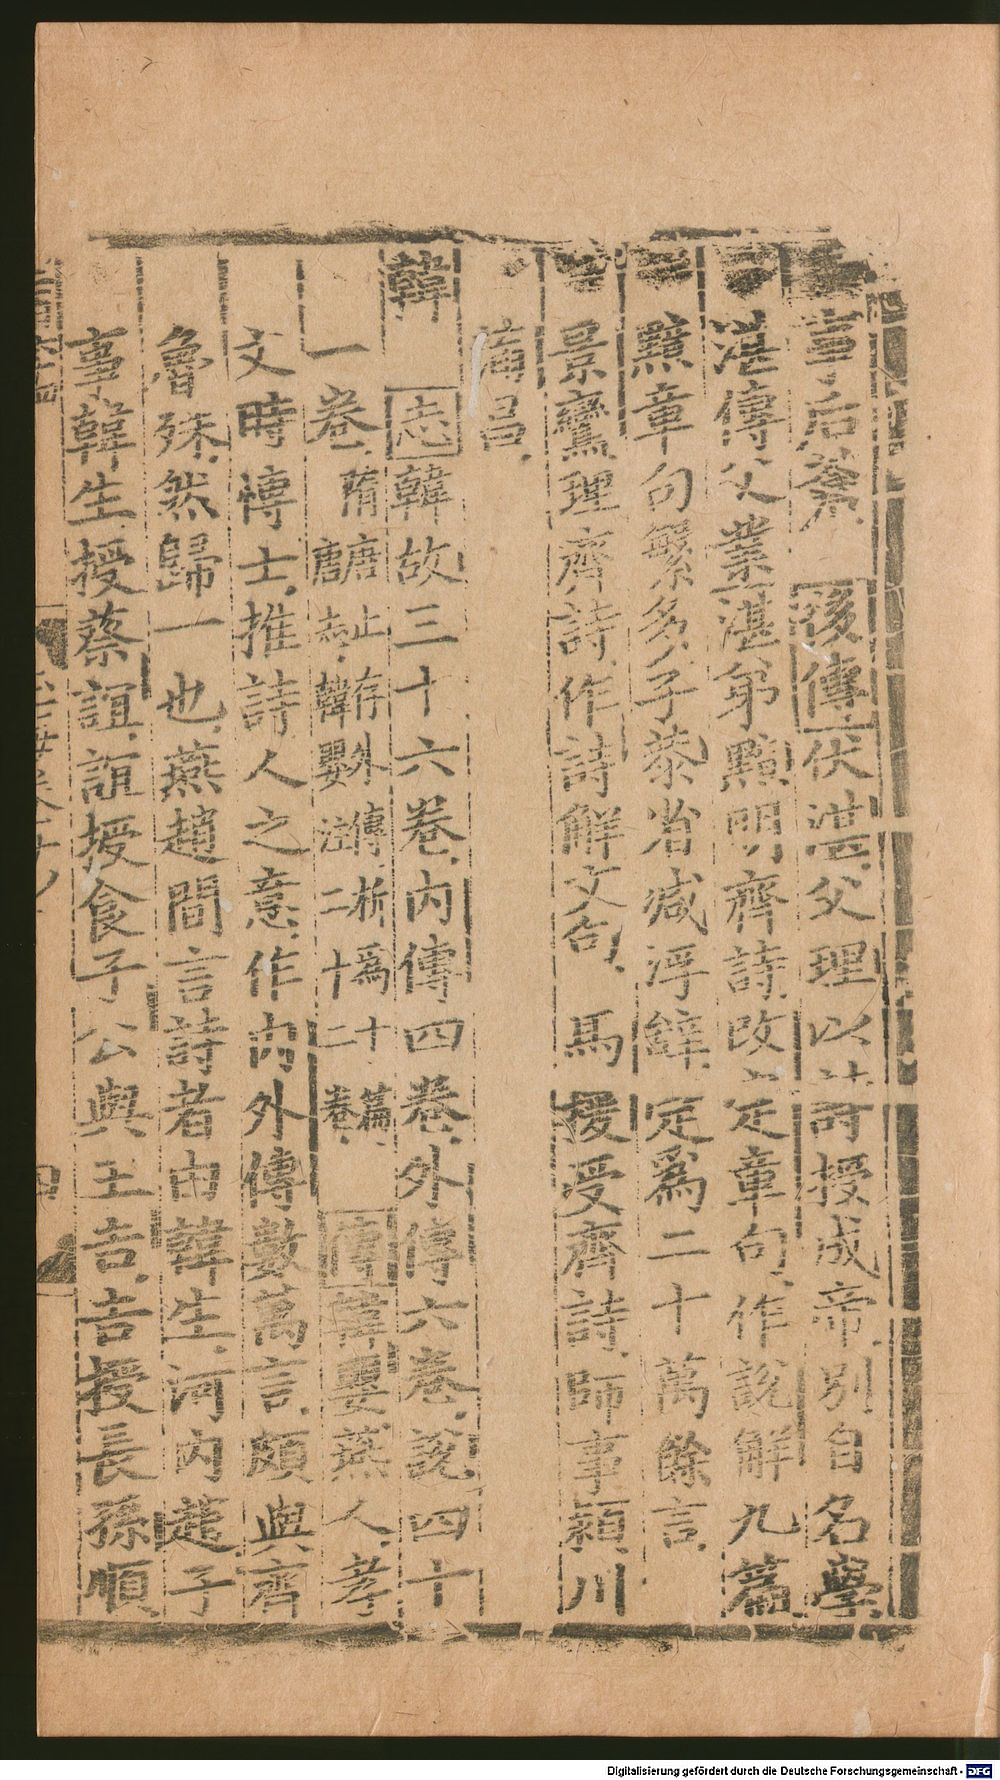 事后蒼後傳伏湛父理以詩授成帝別自名學
湛傳父業湛弟黯明齊詩改定章句作說解九篇
黯章句繁多子恭省減浮辭定爲二十萬餘言
景鸞理齊詩作詩解文句馬援受齊詩師事潁川
蒲昌
韓志韓故三十六卷內傳四卷外傳六卷說四十
一卷隋唐志止存外傳析爲十篇韓嬰注二十二卷傳韓嬰燕人孝
文時博士推詩人之意作內外傳數萬言頗與齊
魯殊然歸一也燕趙間言詩者由韓生河內趙子
事韓生授蔡誼誼授食子公與王吉吉授長孫順
Digitalisierung gefördert durch die Deutsche Forschungsgemeinschaft - DFG